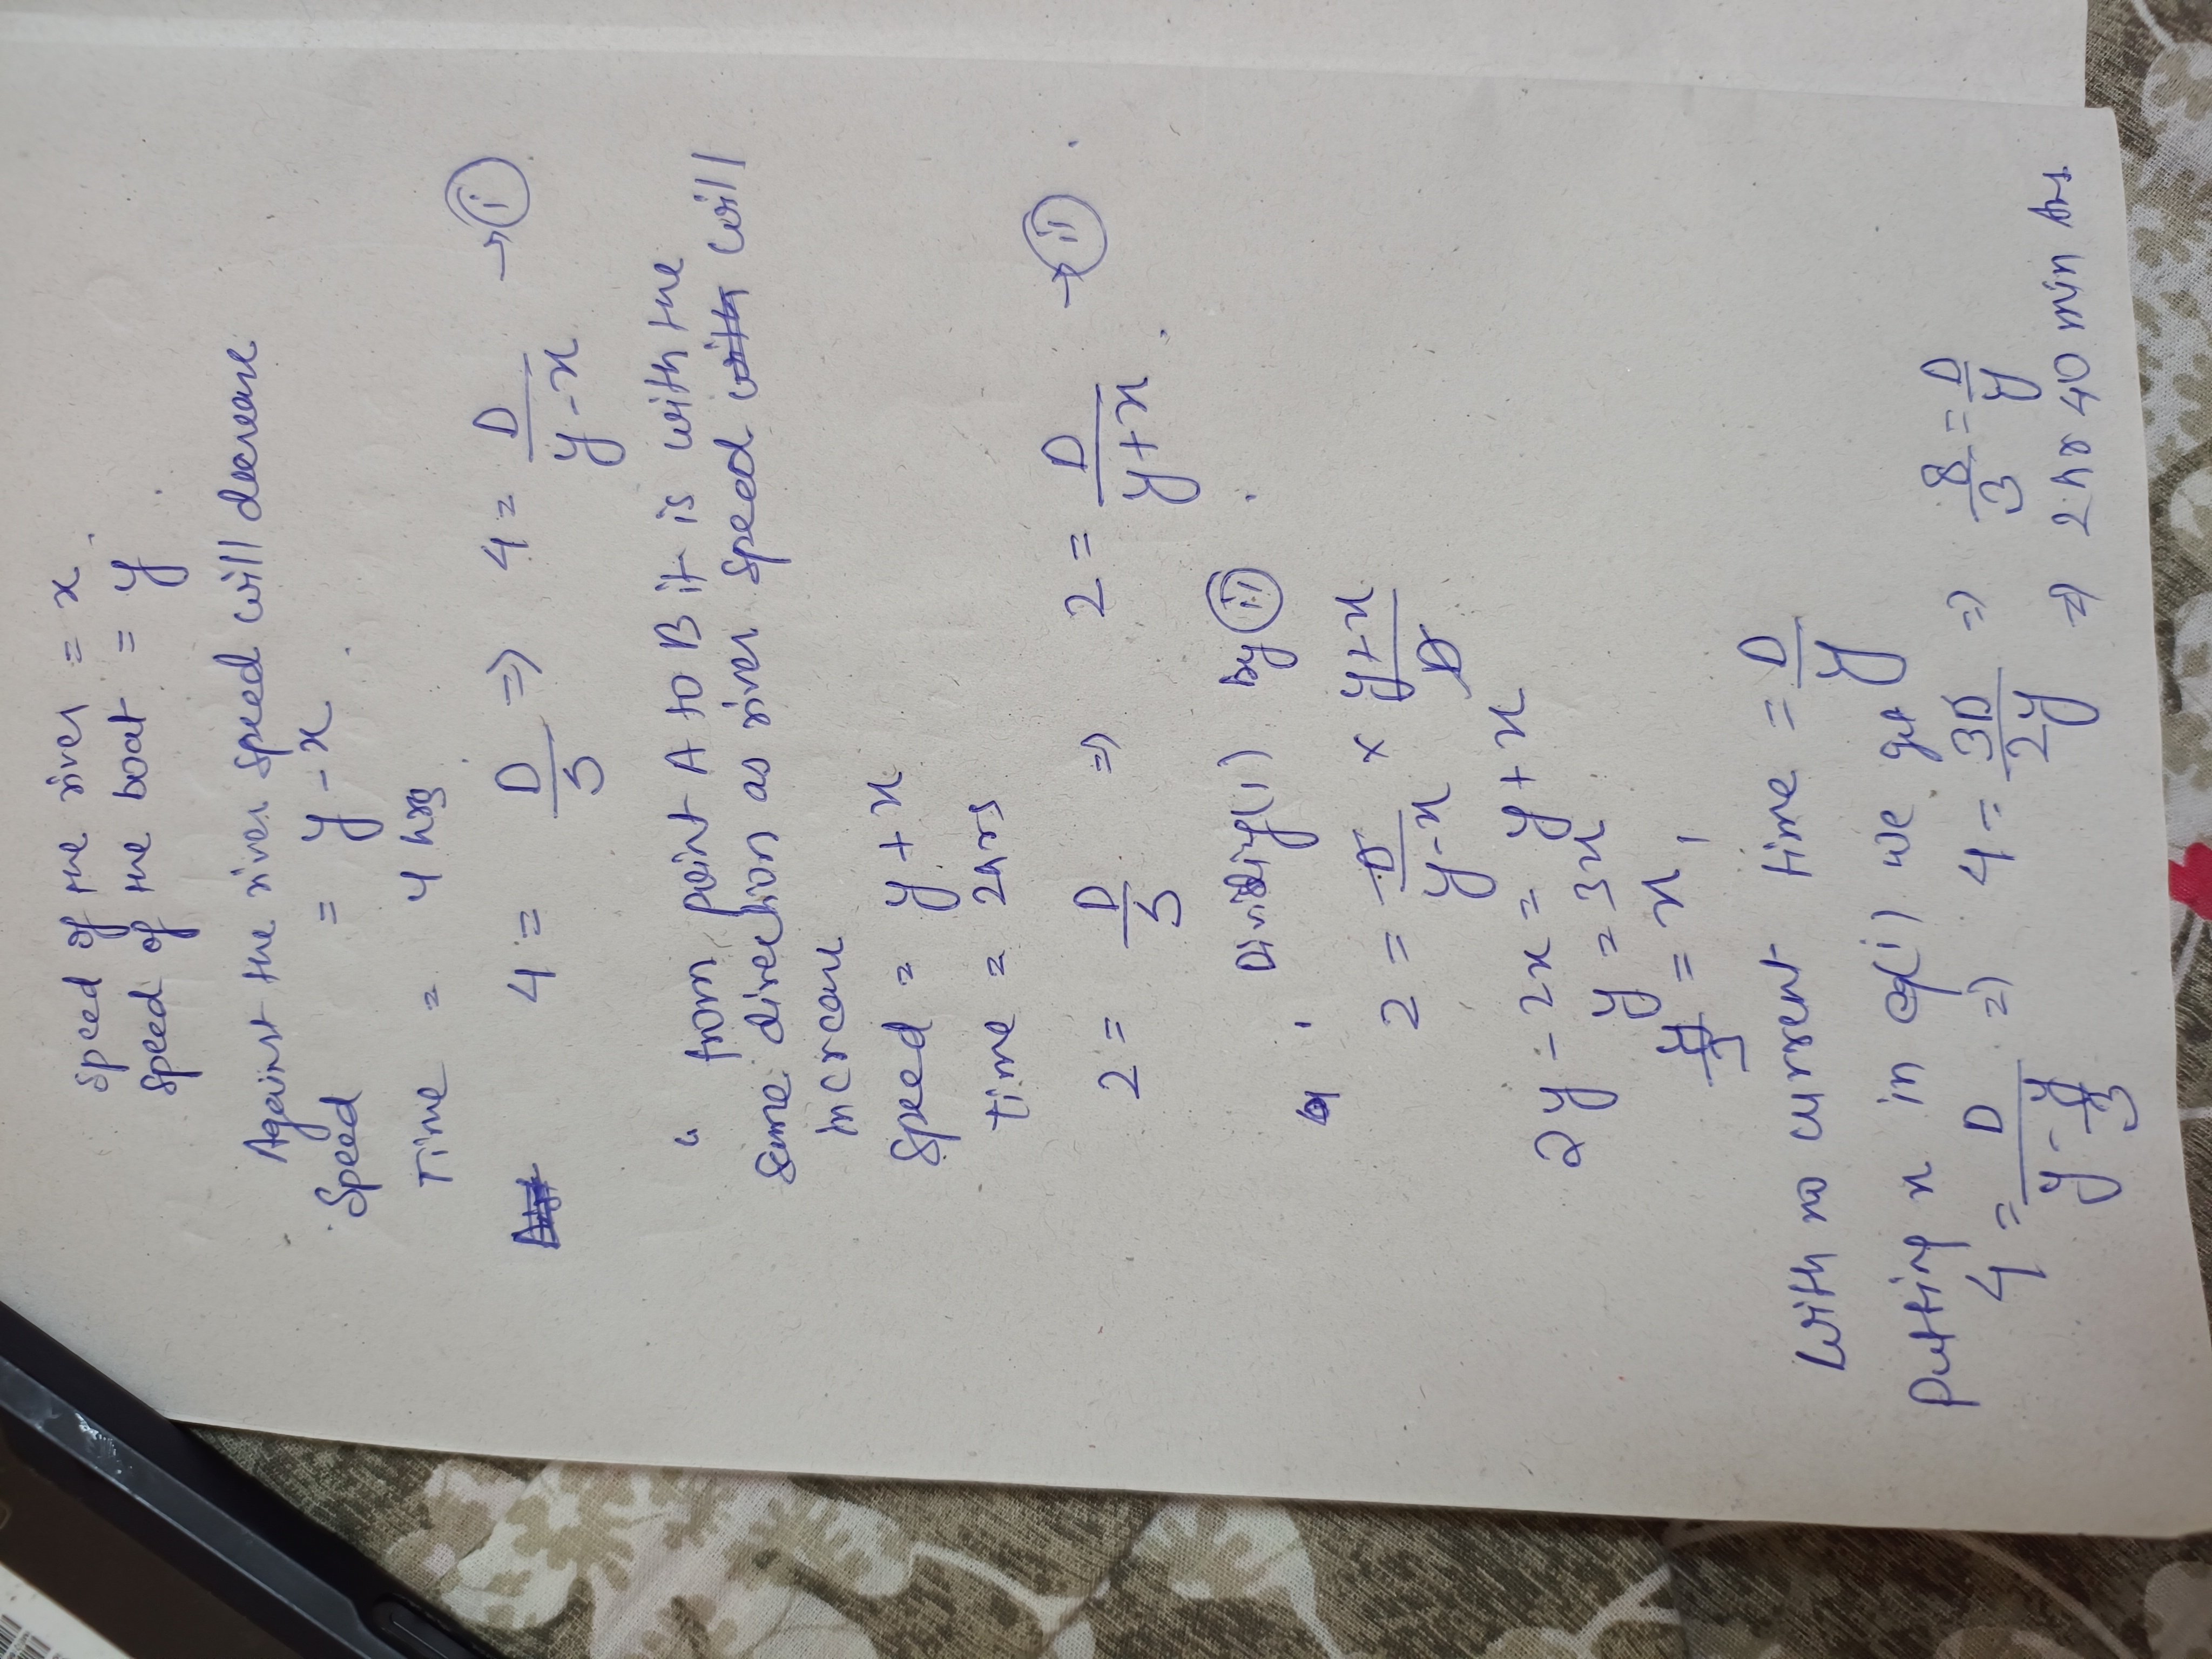 Speed of the river = x.
Speed of the boat = y.
Against the river speed will decrease
Speed = y - x.
Time = 4 hrs
4 = D/S => 4 = D/y-x → (i)
from point A to B it is with the
same direction as river speed with will
increase
Speed = y + x
time = 2hrs
2 = D/S => 2 = D/y+x → (ii)
Dividiy(i) by (ii)
2 = D/y-x × y+x/D
2y - 2x = y + x
y = 3x
y/3 = x,
With no current time = D/y
putting x in eq(i) we get
4 = D/y - y/3 => 4 = 3D/2y => 8/3 = D/y
=> 2hr 40 min Ans